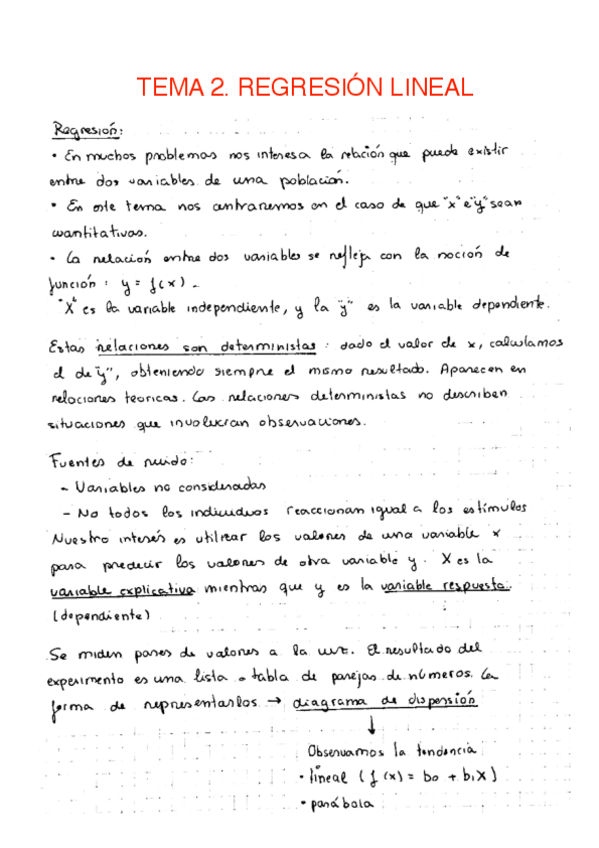 TEMA 2. REGRESIÓN LINEAL
Regresión:
• En muchos problemas nos interesa la relación que puede existir
entre dos variables de una población.
• En este tema nos centraremos en el caso de que "x" e "y" sean
cuantitativas.
• La relación entre dos variables se refleja con la noción de
función: y = f(x).
"X" es la variable independiente, y la "y" es la variable dependiente.
Estas relaciones son deterministas: dado el valor de x, calculamos
el de "y", obteniendo siempre el mismo resultado. Aparecen en
relaciones teoricas. Las relaciones deterministas no describen
situaciones que involucran observaciones.
Fuentes de ruido:
- Variables no consideradas
- No todos los individuos reaccionan igual a los estímulos
Nuestro interés es utilizar los valores de una variable x
para predecir los valores de otra variable y. X es la
variable explicativa mientras que y es la variable respuesta.
(dependiente)
Se miden pares de valores a la vez. El resultado del
experimento es una lista o tabla de parejas de números. La
forma de representarlos → diagrama de dispersión
↓
Observamos la tendencia
• lineal (f(x) = b0 + b1X)
• parábola